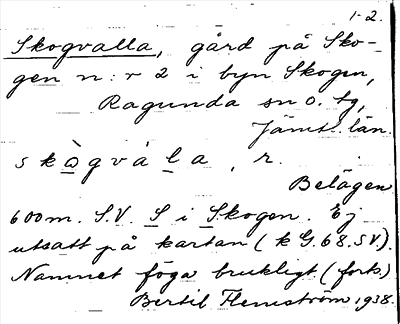 1-2.
Skogvalla, gård på Sko-
gen n:r 2 i byn Skogen,
Ragunda sn o. tg,
Jämtl. län.
skògvàla, r.
Belägen
600 m. S.V. S i Skogen. Ej
utsatt på kartan (k G.68.SV).
Namnet föga brukligt. (forts)
Bertil Flemström 1938.